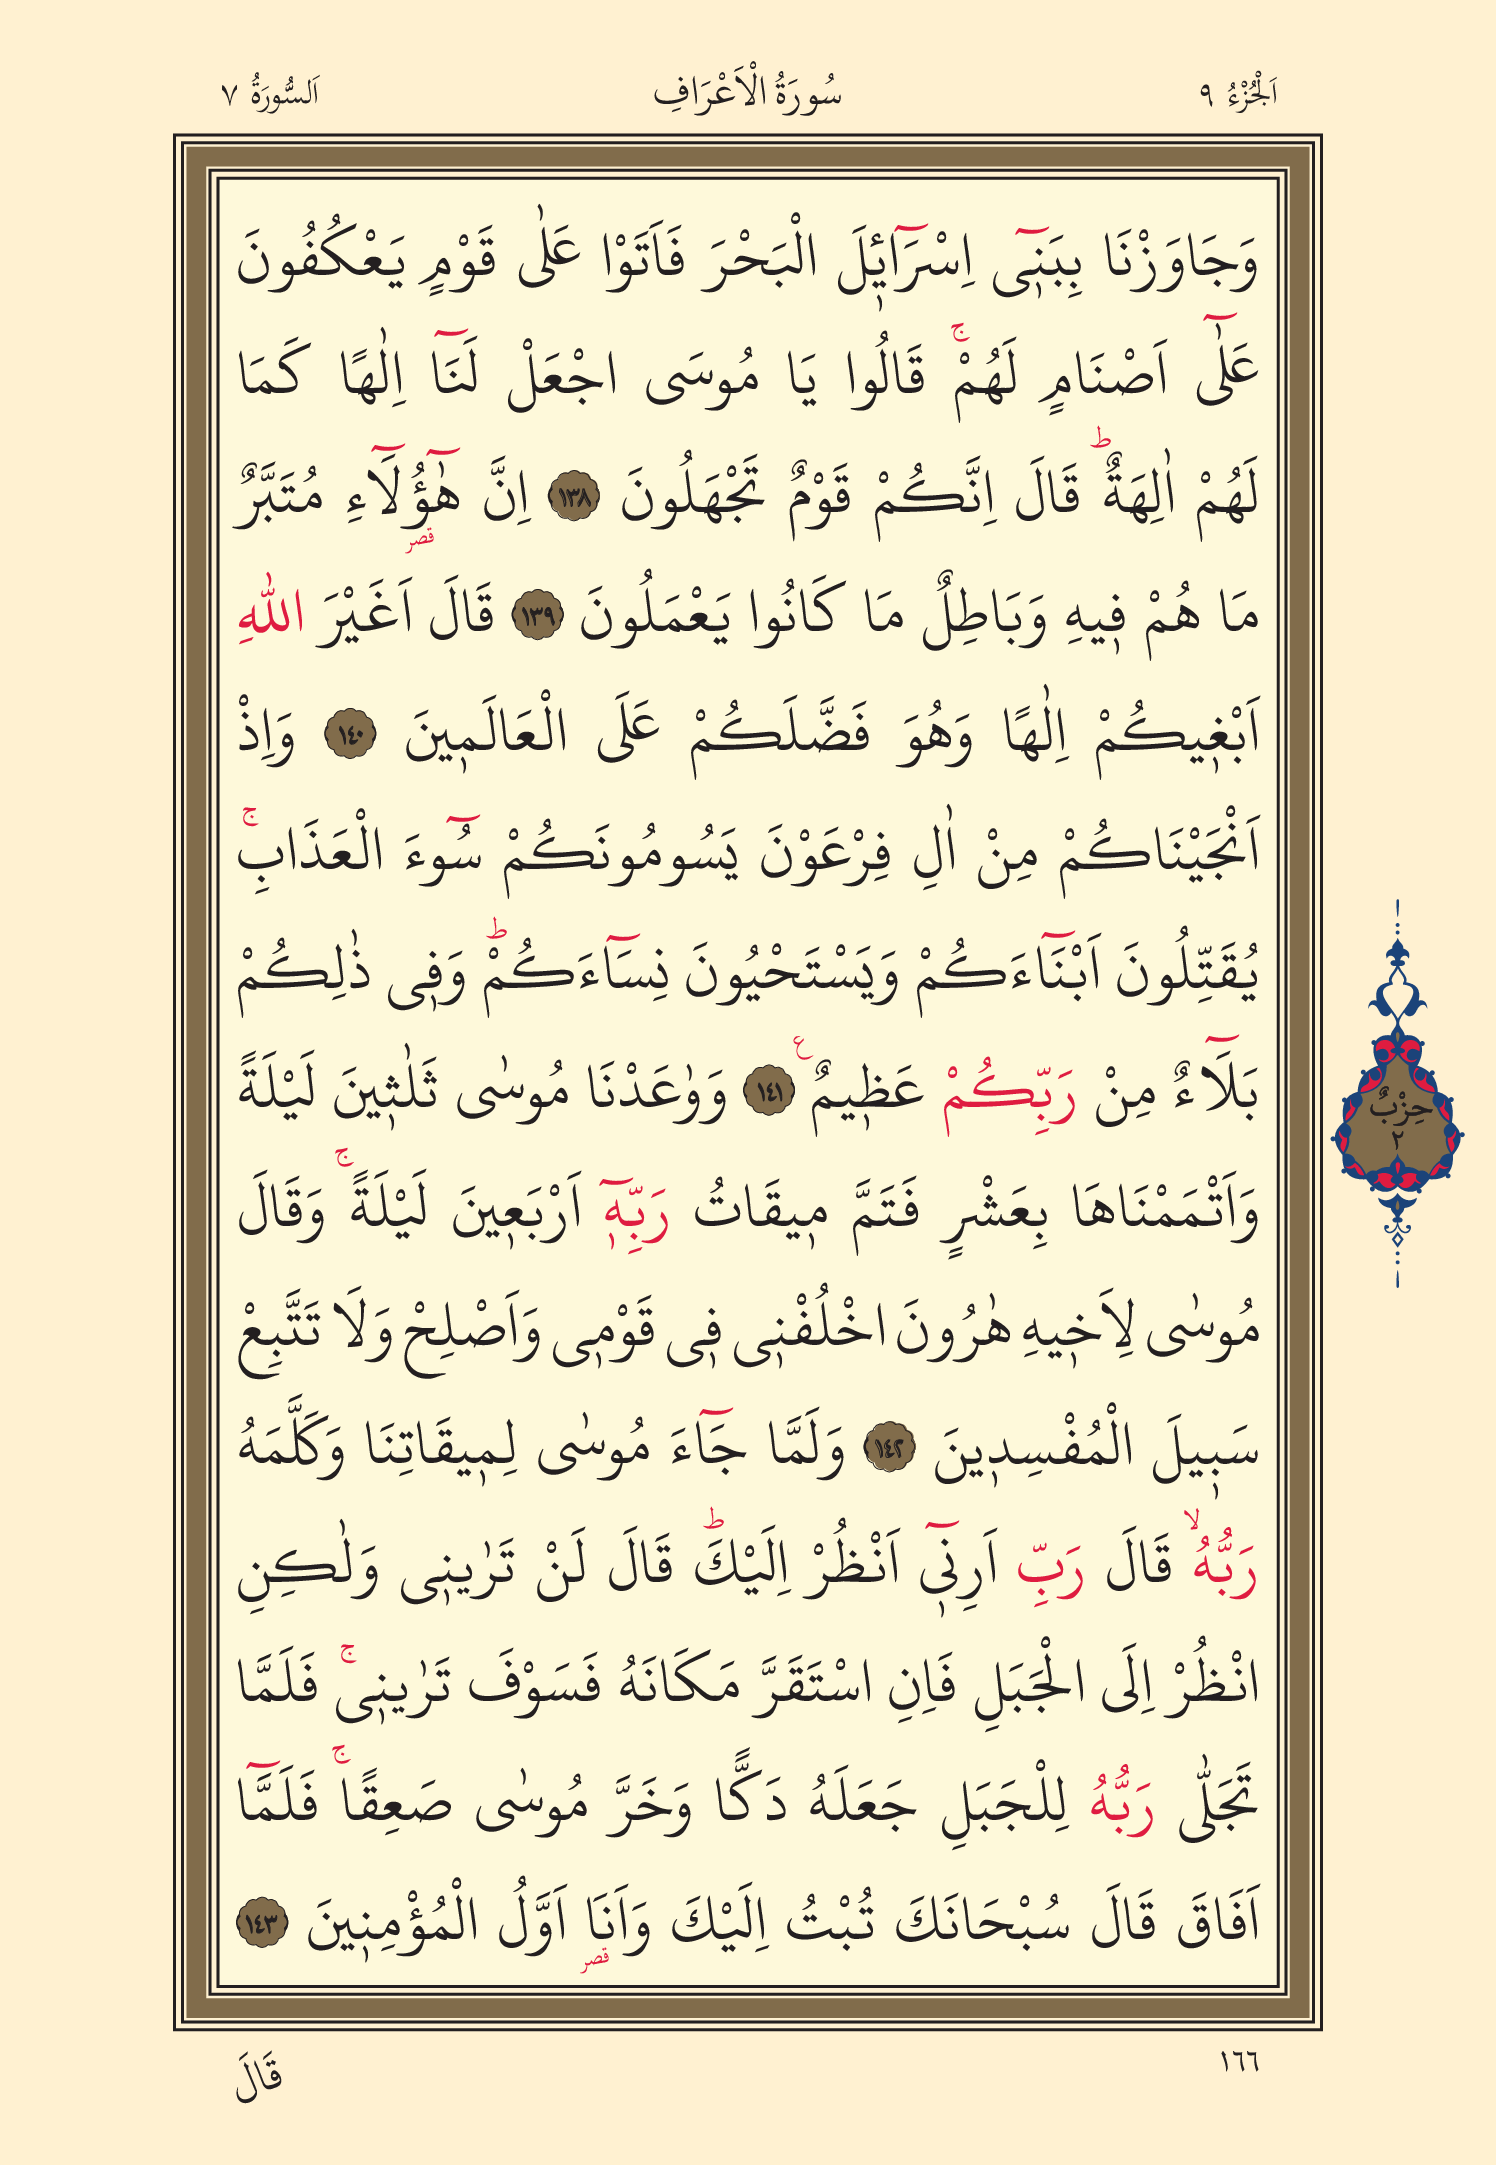 اَلْجُزْءُ ٩
سُورَةُ الْاَعْرَافِ
اَلسُّورَةُ ٧
وَجَاوَزْنَا بِبَنٖٓى اِسْرَٓائٖلَ الْبَحْرَ فَاَتَوْا عَلٰى قَوْمٍ يَعْكُفُونَ
عَلٰٓى اَصْنَامٍ لَهُمْۚ قَالُوا يَا مُوسَى اجْعَلْ لَنَٓا اِلٰهًا كَمَا
لَهُمْ اٰلِهَةٌؕ قَالَ اِنَّكُمْ قَوْمٌ تَجْهَلُونَ ١٣٨ اِنَّ هٰٓؤُ۬لَٓاءِ مُتَبَّرٌ
قصر
مَا هُمْ فٖيهِ وَبَاطِلٌ مَا كَانُوا يَعْمَلُونَ ١٣٩ قَالَ اَغَيْرَ اللّٰهِ
اَبْغٖيكُمْ اِلٰهًا وَهُوَ فَضَّلَكُمْ عَلَى الْعَالَمٖينَ ١٤٠ وَاِذْ
اَنْجَيْنَاكُمْ مِنْ اٰلِ فِرْعَوْنَ يَسُومُونَكُمْ سُٓوءَ الْعَذَابِۚ
يُقَتِّلُونَ اَبْنَٓاءَكُمْ وَيَسْتَحْيُونَ نِسَٓاءَكُمْؕ وَفٖى ذٰلِكُمْ
بَلَٓاءٌ مِنْ رَبِّكُمْ عَظٖيمٌ ع ١٤١ وَوٰعَدْنَا مُوسٰى ثَلٰثٖينَ لَيْلَةً
وَاَتْمَمْنَاهَا بِعَشْرٍ فَتَمَّ مٖيقَاتُ رَبِّهٖٓ اَرْبَعٖينَ لَيْلَةًۚ وَقَالَ
مُوسٰى لِاَخٖيهِ هٰرُونَ اخْلُفْنٖى فٖى قَوْمٖى وَاَصْلِحْ وَلَا تَتَّبِعْ
سَبٖيلَ الْمُفْسِدٖينَ ١٤٢ وَلَمَّا جَٓاءَ مُوسٰى لِمٖيقَاتِنَا وَكَلَّمَهُ
رَبُّهُۙ قَالَ رَبِّ اَرِنٖٓى اَنْظُرْ اِلَيْكَؕ قَالَ لَنْ تَرٰينٖى وَلٰكِنِ
انْظُرْ اِلَى الْجَبَلِ فَاِنِ اسْتَقَرَّ مَكَانَهُ فَسَوْفَ تَرٰينٖىۚ فَلَمَّا
تَجَلّٰى رَبُّهُ لِلْجَبَلِ جَعَلَهُ دَكًّا وَخَرَّ مُوسٰى صَعِقًاۚ فَلَمَّٓا
اَفَاقَ قَالَ سُبْحَانَكَ تُبْتُ اِلَيْكَ وَاَنَا اَوَّلُ الْمُؤْمِنٖينَ ١٤٣
قصر
حِزْبٌ
٢
١٦٦
قَالَ